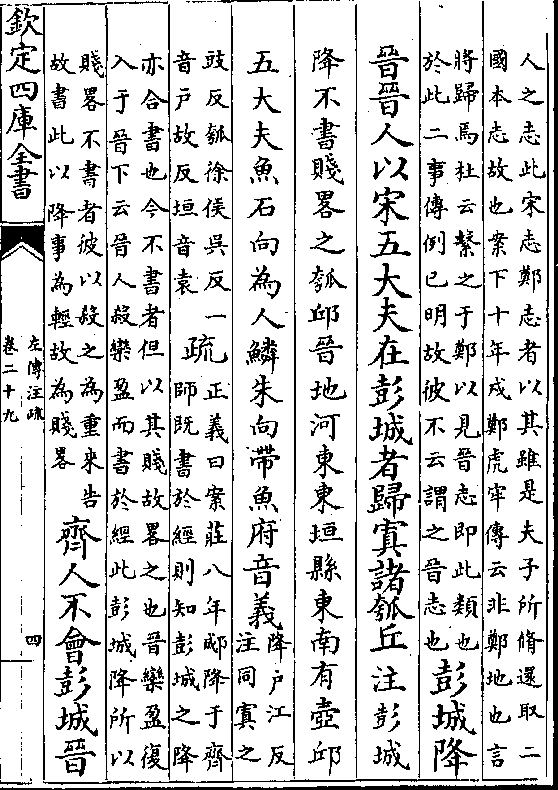 人之志此宋志鄭志者以其雖是夫子所脩還取二
國本志故也案下十年戍鄭虎牢傳云非鄭地也言
將歸焉杜云繫之于鄭以見晉志即此類也
於此二事傳例已明故彼不云謂之晉志也
彭城降
晉晉人以宋五大夫在彭城者歸寘諸瓠丘 注彭城
降不書賤畧之瓠邱晉地河東東垣縣東南有壺邱
五大夫魚石向為人鱗朱向帶魚府音義
降户江反
注同寘之
豉反瓠徐侯吳反一
音户故反垣音袁
疏
正義曰案莊八年郕降于齊
師既書於經則知彭城之降
亦合書也今不書者但以其賤故畧之也晉欒盈復
入于晉下云晉人殺欒盈而書於經此彭城降所以
賤畧不書者彼以殺之為重來告
故書此以降事為輕故為賤畧
齊人不會彭城晉
欽定四庫全書
左傳注疏
卷二十九
四